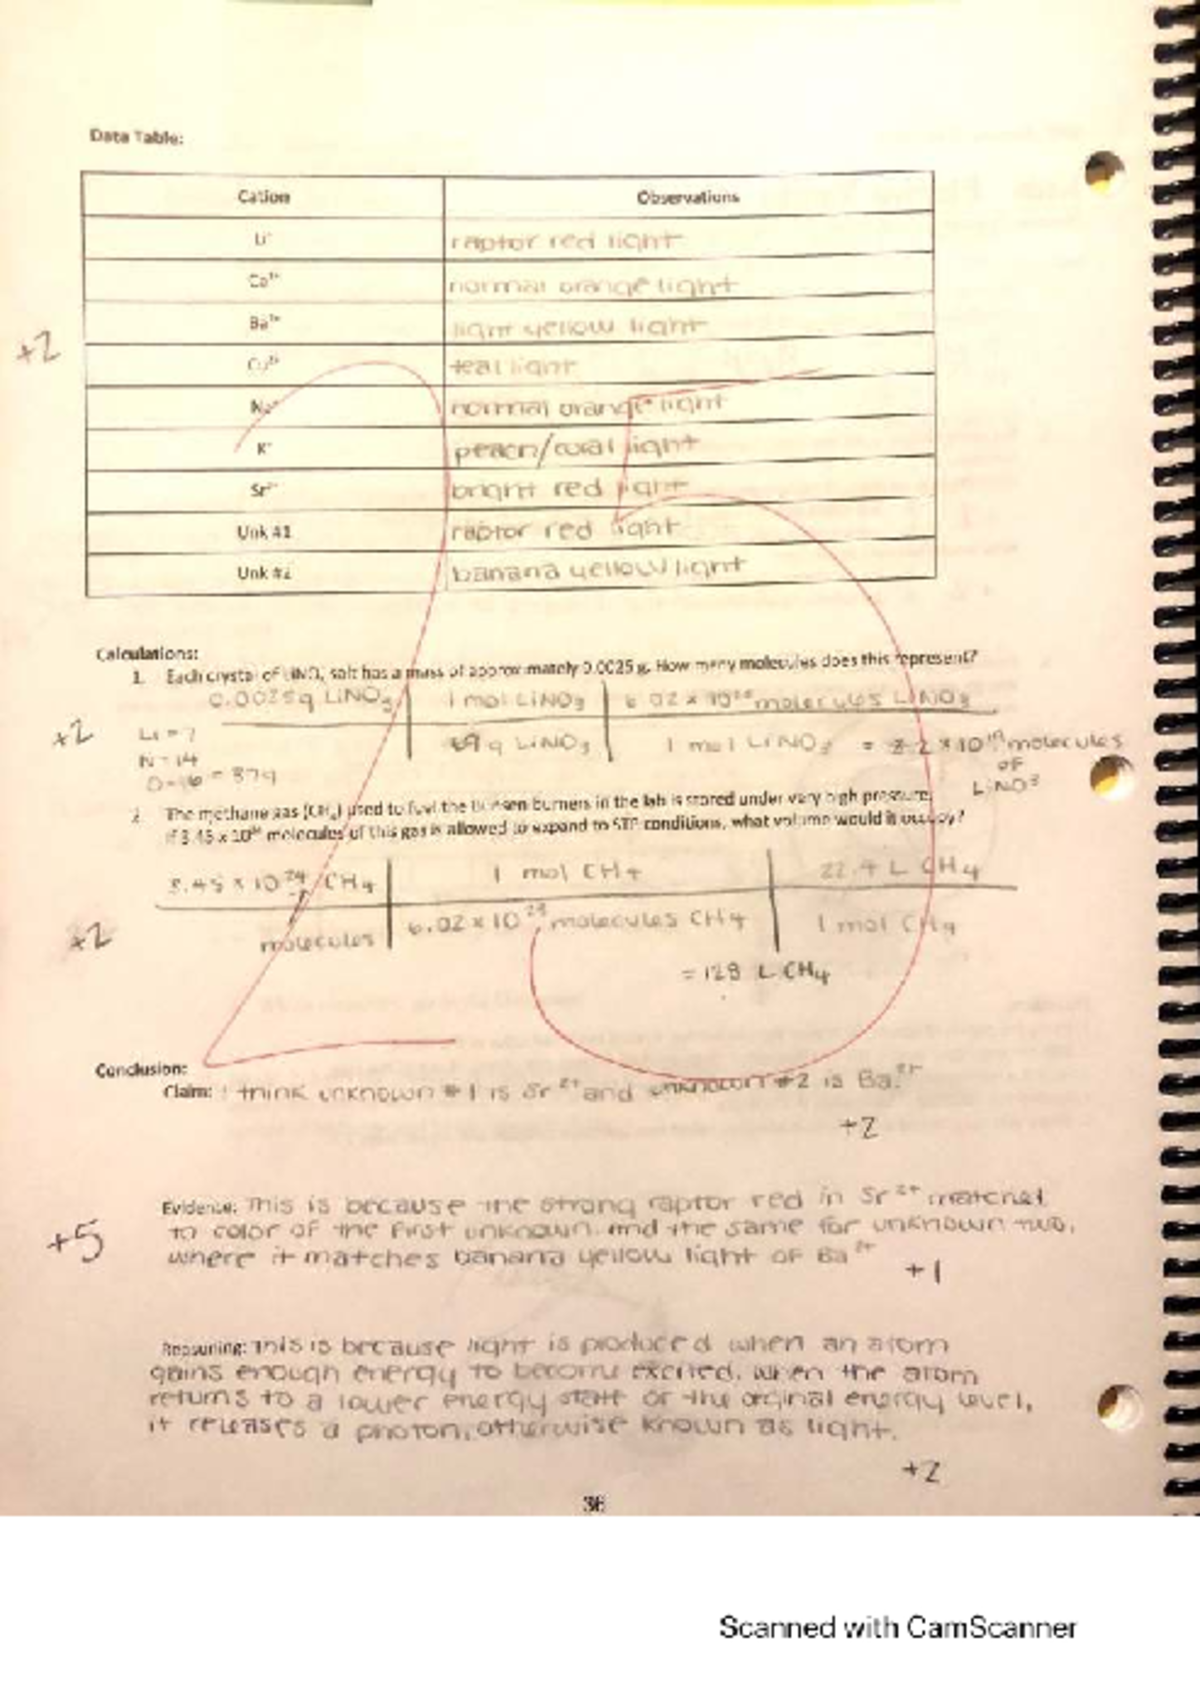 Data Table:
Cation Observations
Li⁺ raptor red light
Ca²⁺ normal orange light
Ba²⁺ light yellow light
+2
Cu²⁺ teal light
Na⁺ normal orange light
K⁺ peach/coral light
Sr²⁺ bright red light
Unk #1 raptor red light
Unk #2 banana yellow light
25
Calculations:
1. Each crystal of LiNO₃ salt has a mass of approximately 0.0025 g. How many molecules does this represent?
0.0025g LiNO₃ 1 mol LiNO₃ 6.02 x 10²³ molecules LiNO₃
+2
69g LiNO₃ 1 mol LiNO₃ = 2.2 x 10¹⁹ molecules
of
LiNO³
Li = 7
N = 14
O-16
2. The methane gas (CH₄) used to fuel the Bunsen burners in the lab is stored under very high pressure.
If 3.45 x 10²⁴ molecules of this gas is allowed to expand to STP conditions, what volume would it occupy?
3.45 x 10²⁴ CH₄ 1 mol CH₄ 22.4 L CH₄
molecules 6.02 x 10²³ molecules CH₄ 1 mol CH₄
+2
= 128 L CH₄
Conclusion:
Claim: I think unknown #1 is Sr²⁺ and unknown #2 is Ba.²⁺
+2
Evidence: This is because the strong raptor red in Sr²⁺
to color of the first unknown. And the same for unknown two,
+5
where it matches banana yellow light of Ba²⁺
+1
Reasoning: This is because light is produced when an atom
gains enough energy to become excited. When the atom
returns to a lower energy state or the orginal energy level,
it releases a photon, otherwise known as light.
+2
36
Scanned with CamScanner